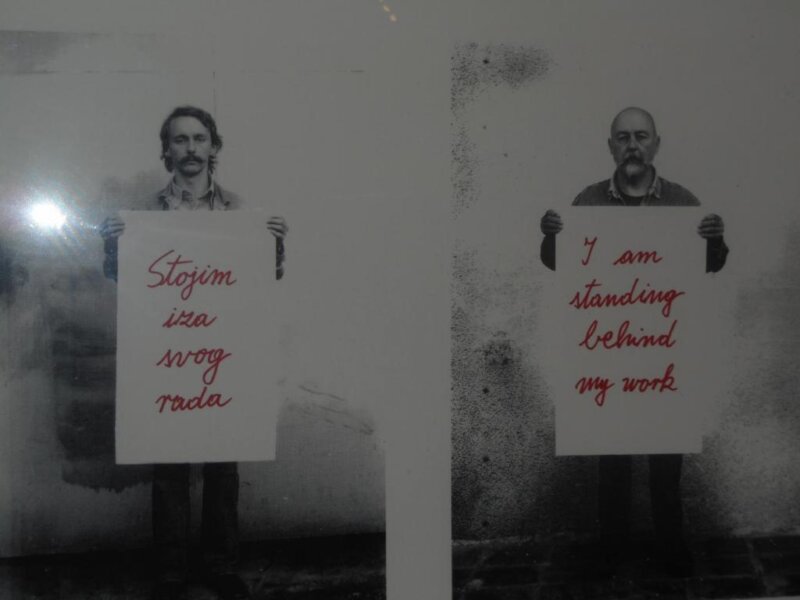 Stojim
iza
svog
rada
I am
standing
behind
my work